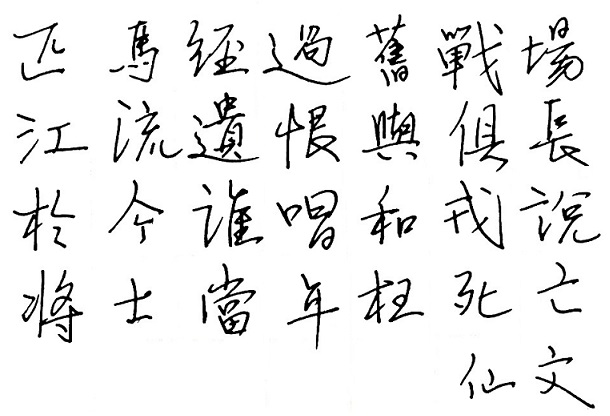 匹馬經過舊戰場
江流遺恨與俱長
於今誰唱和戎說
將士當年枉死亡
仙文